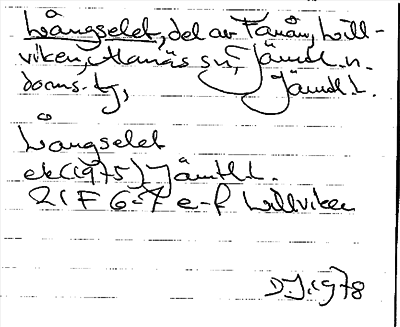 Långselet, del av Fånån, Lill-
viken, Alanäs sn, Jämtl. n.
doms. tg, Jämtl. l.
Långselet
ek (1975) Jämtl. l.
21F 6-7 e-f Lillviken
D.J. 1978